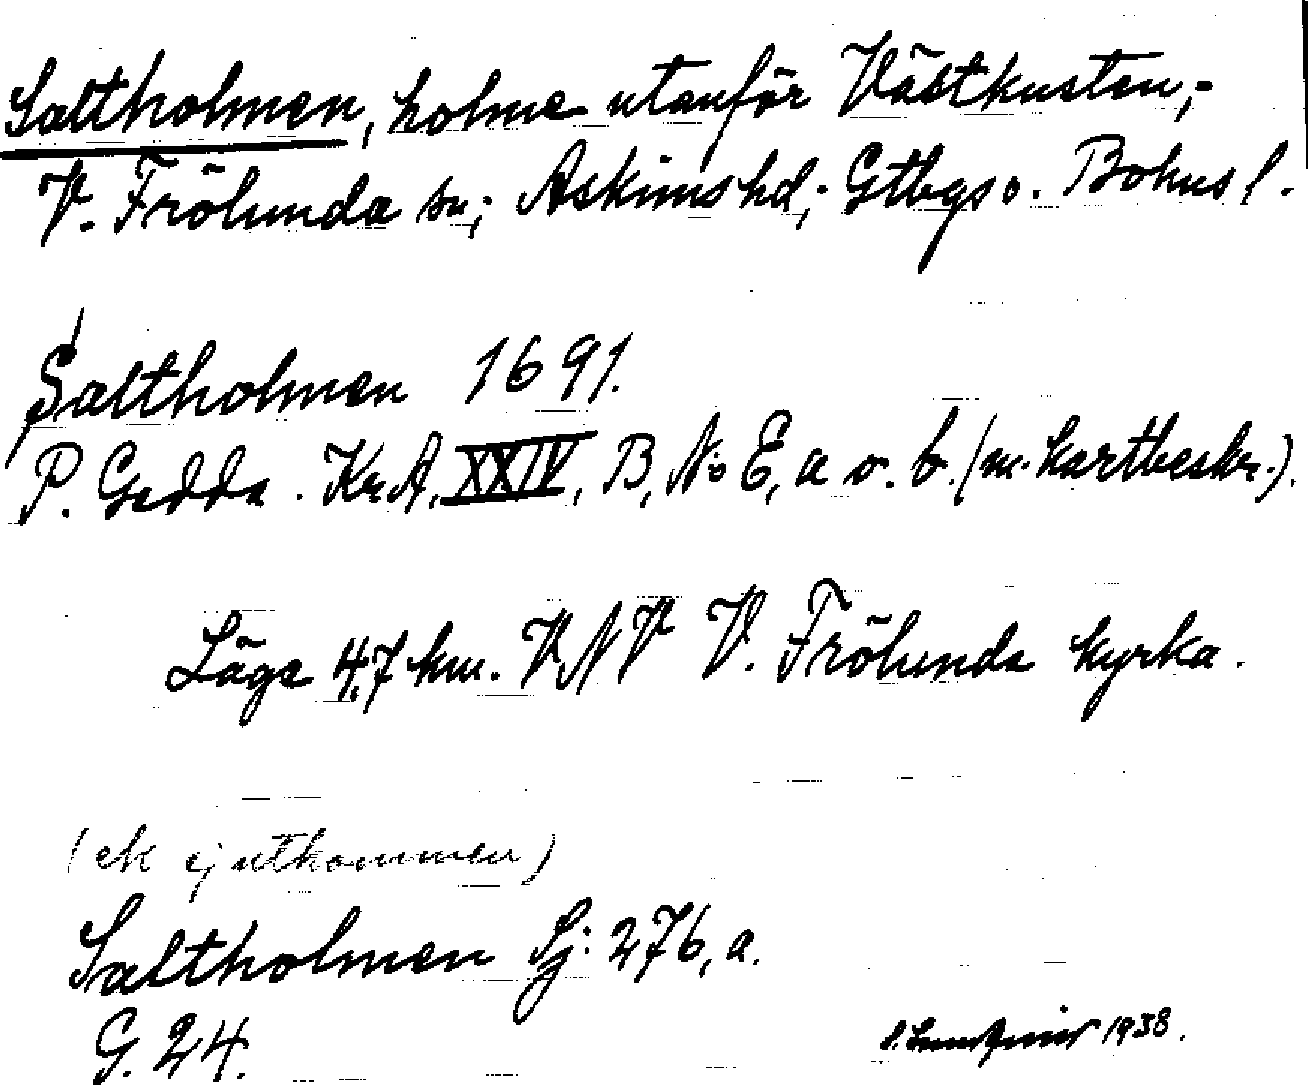 Saltholmen, holme utanför Västkusten,-
V. Frölunda sn; Askims hd; Gtbgs o. Bohus l.
Saltholmen 1691.
P. Gedda. Kr.A. XXIV, B, No E, a o. b. (m. kartbeskr.).
Läge 4,7 km. VNV V. Frölunda kyrka.
(ek ej utkommen)
Saltholmen Sj: 276, a.
G. 24.
1938.